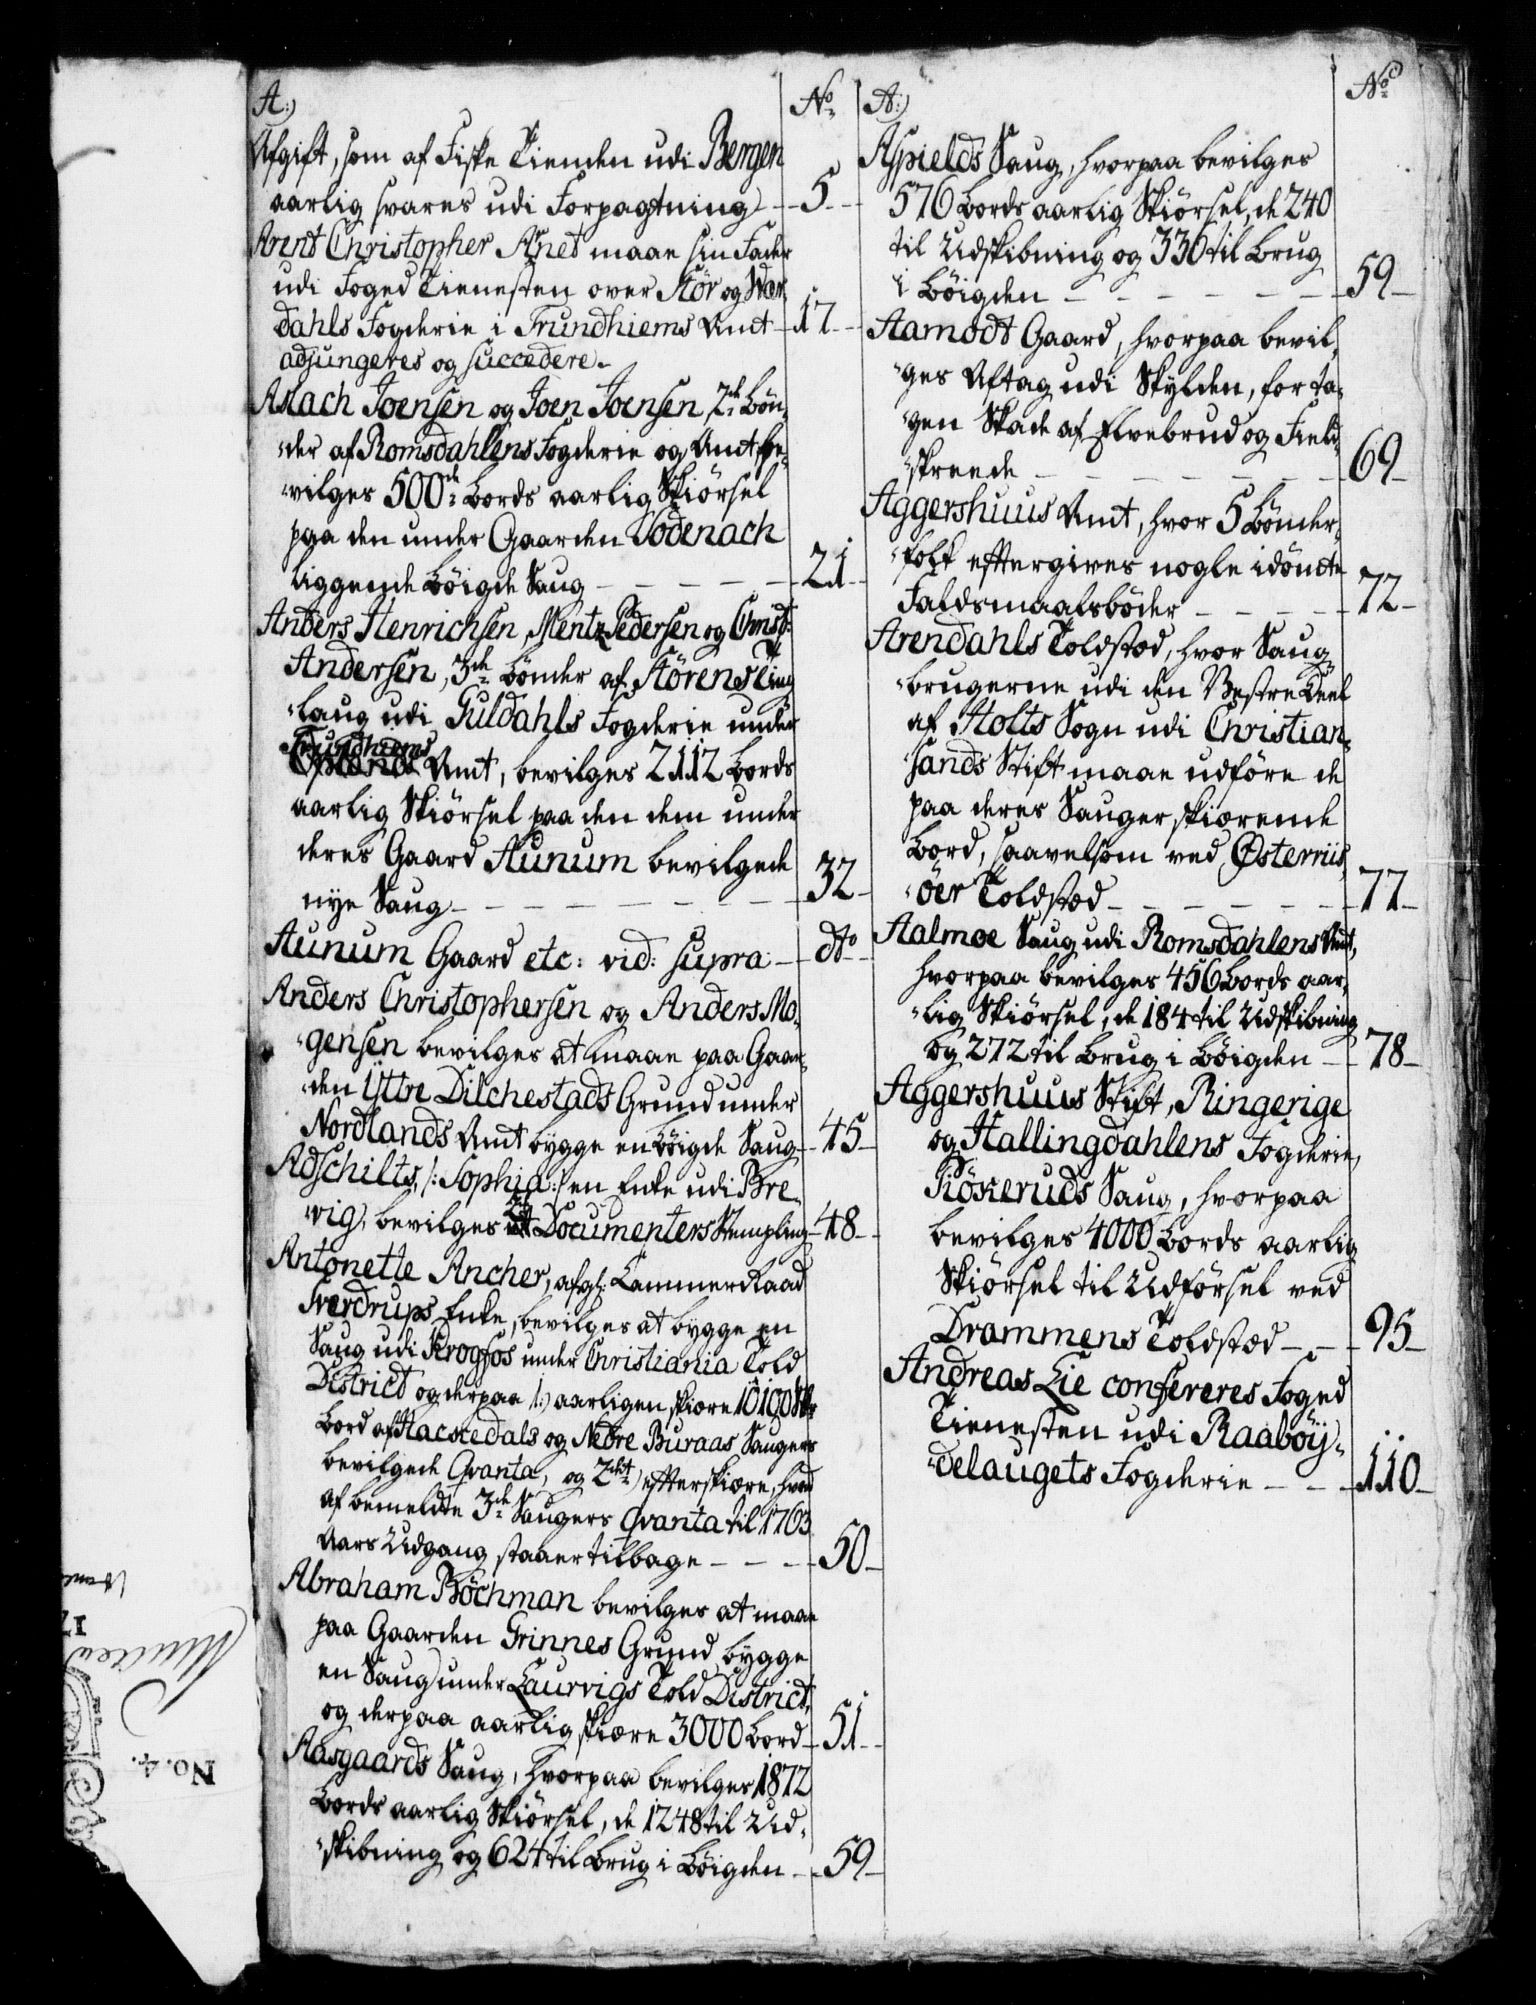 A:)
No
Afgift, som af Fiske Tienden udi Bergen
aarlig svares udi Forpagtning - 5 -
Arent Christopher Arnet maae sin Fader
udi Foged Tienesten over Stör og Wær„
dahls Fogderie i Trundhiems Amt - 17 -
adjungeres og succedere.
Aslach Joensen og Joen Joensen, 2de Bön„
„der af Romsdahlens Fogderie og Amt be„
„vilges 500de Bords aarlig Skiörsel
paa den under Gaarden Södenach
liggende Böigde Saug - - - - - 21 -
Anders Henrichsen, Mentz Pedersen og Christ:
Andersen, 3de Bönder af Störens Ting„
„laug udi Guldahls Fogderie under
Trundhiems
Amt, bevilges 2112 Bords
aarlig Skiörsel paa den dem under
deres Gaard Aunum bevilgede
nye Saug - - - - - - - 32 -
Aunum Gaard etc: vid: supra - dto -
Anders Christophersen og Anders Mo„
„gensen bevilges at maae paa Gaar„
„den Ÿttre Dilchestads Grund under
Nordlands Amt bygge en Böigde Saug - 45 -
Adschilts, /: Sophia :/ en Enke udi Bre„
„vig, bevilges Documenters Stempling - 48 -
Antonette Ancher, afg: Cammer Raad
Sverdrups Enke, bevilges at bygge en
Saug udi Krogfos under Christiania Told
District og derpaa 1:) aarligen skiære 10100
Bord af Hacsteedals og Nedre Buraas Saugers
bevilgede Qvanta, og 2det) efterskiære, hvad
af bemeldte 3de Saugers Qvanta til 1763
Aars Udgang staaer tilbage - - - 50 -
Abraham Böchman bevilges at maae
paa Gaarden Grinnes Grund bygge
en Saug under Laurvigs Told District,
og derpaa aarlig skiære 3000 Bord - 51 -
Aasgaards Saug, hvorpaa bevilges 1872
Bords aarlig Skiörsel, de 1248 til Ud„
„skibning og 624 til Brug i Böigden - 59 -
A:)
No
Aspields Saug, hvorpaa bevilges
576 Bords aarlig Skiörsel, de 240
til Udskibning og 336 til Brug
i Böigden - - - - - - - 59 -
Aamodt Gaard, hvorpaa bevil„
„ges Aftag udi Skylden, for ta„
„gen Skade af Elvebrud og Field„
„skreede - - - - - - - 69 -
Aggershuus Amt, hvor 5 Bönder„
„folk eftergives nogle idömte
Faldsmaalsböder - - - - 72 -
Arendahls Toldsted, hvor Saug„
„brugerne udi den Vestre Deel
af Holts Sogn udi Christian„
„sands Stift maae udföre de
paa deres Sauger skiærende
Bord, saavelsom ved Østerriis„
„öer Toldsted - - - - - - 77 -
Aalmoe Saug udi Romsdahlens Amt,
hvorpaa bevilges 456 Bords aar„
„lig Skiörsel, de 184 til Udskibning
og 272 til Brug i Böigden - 78 -
Aggershuus Stift, Ringerige
og Hallingdahlens Fogderie,
Kiökeruds Saug, hvorpaa
bevilges 4000 Bords aarlig
Skiörsel til Udförsel ved
Drammens Toldsted - - 95 -
Andreas Lie confereres Foged
Tienesten udi Raaböÿ„
„delaugets Fogderie - - - 110 -
17
No. 4.